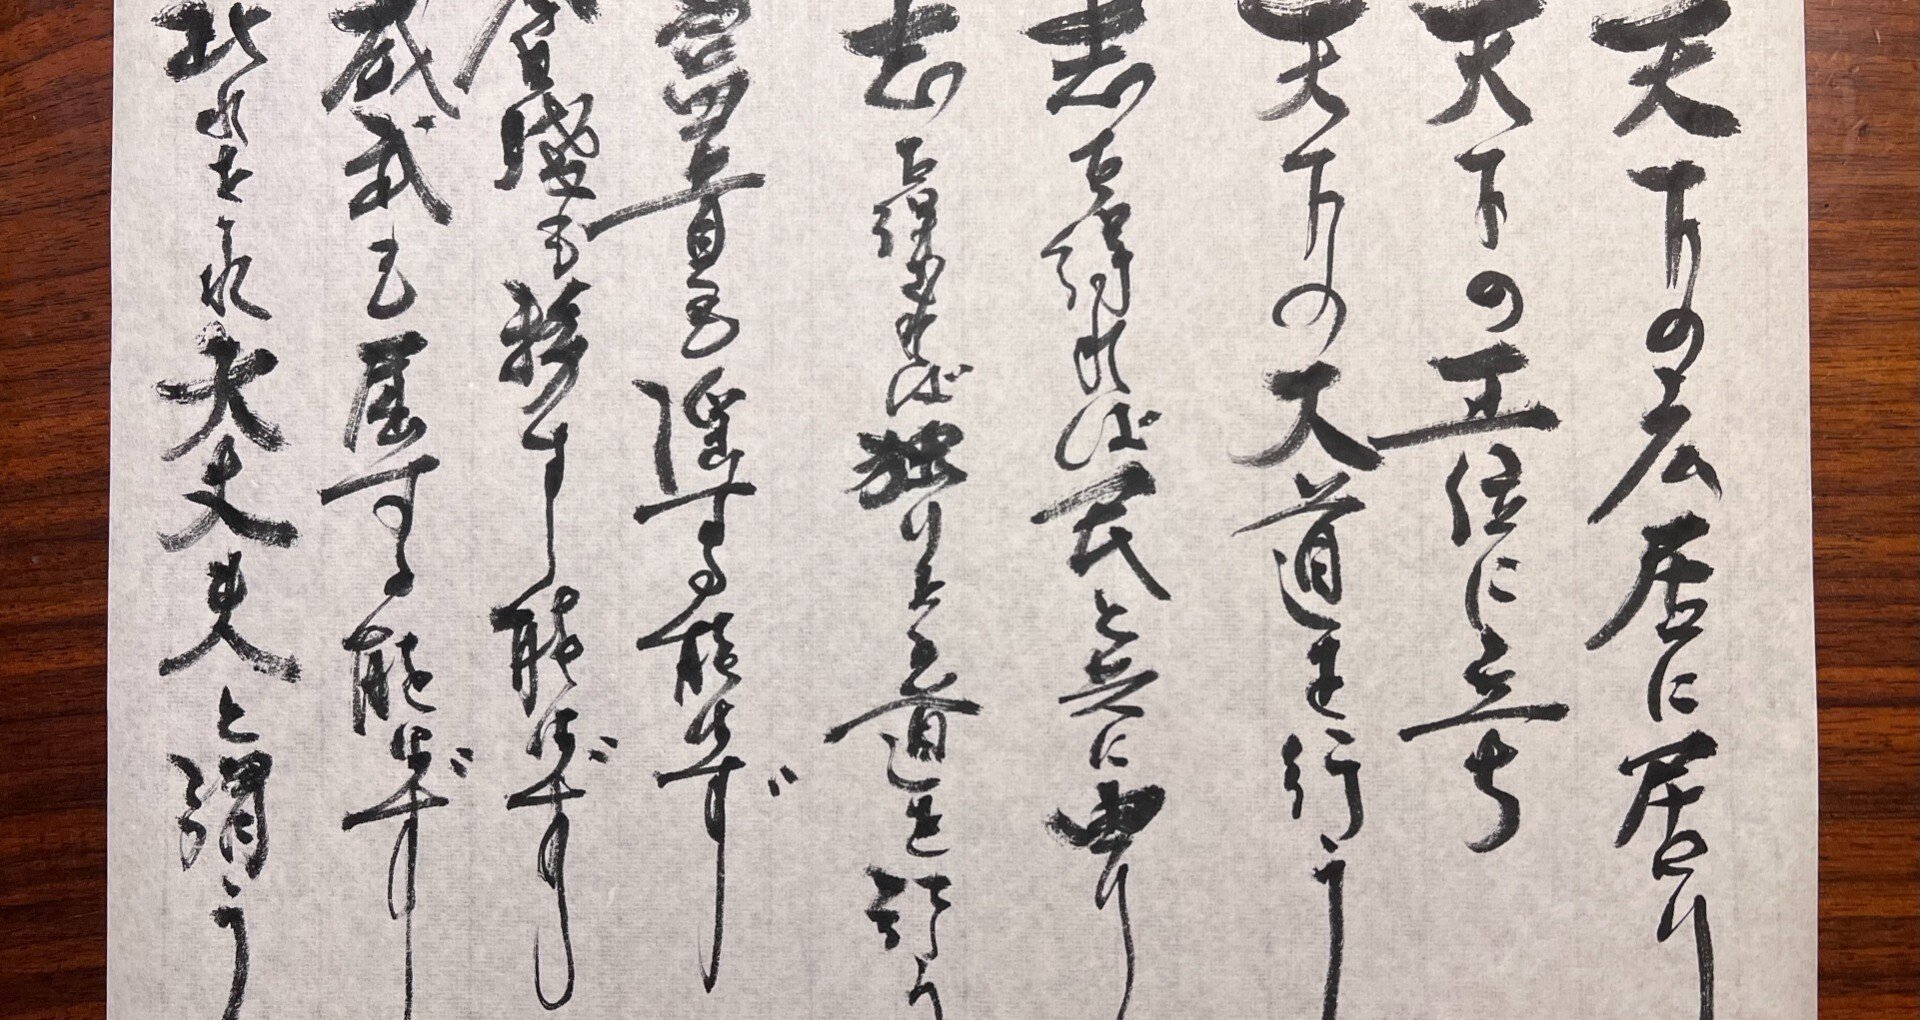 天下の広居に居り
天下の正位に立ち
天下の大道を行う
志を得れば民と共に由り
志を得ざれば独り其の道を行う
富貴も淫する能わず
貧賤も移す能わず
威武も屈する能わず
此れを之れ大丈夫と謂う